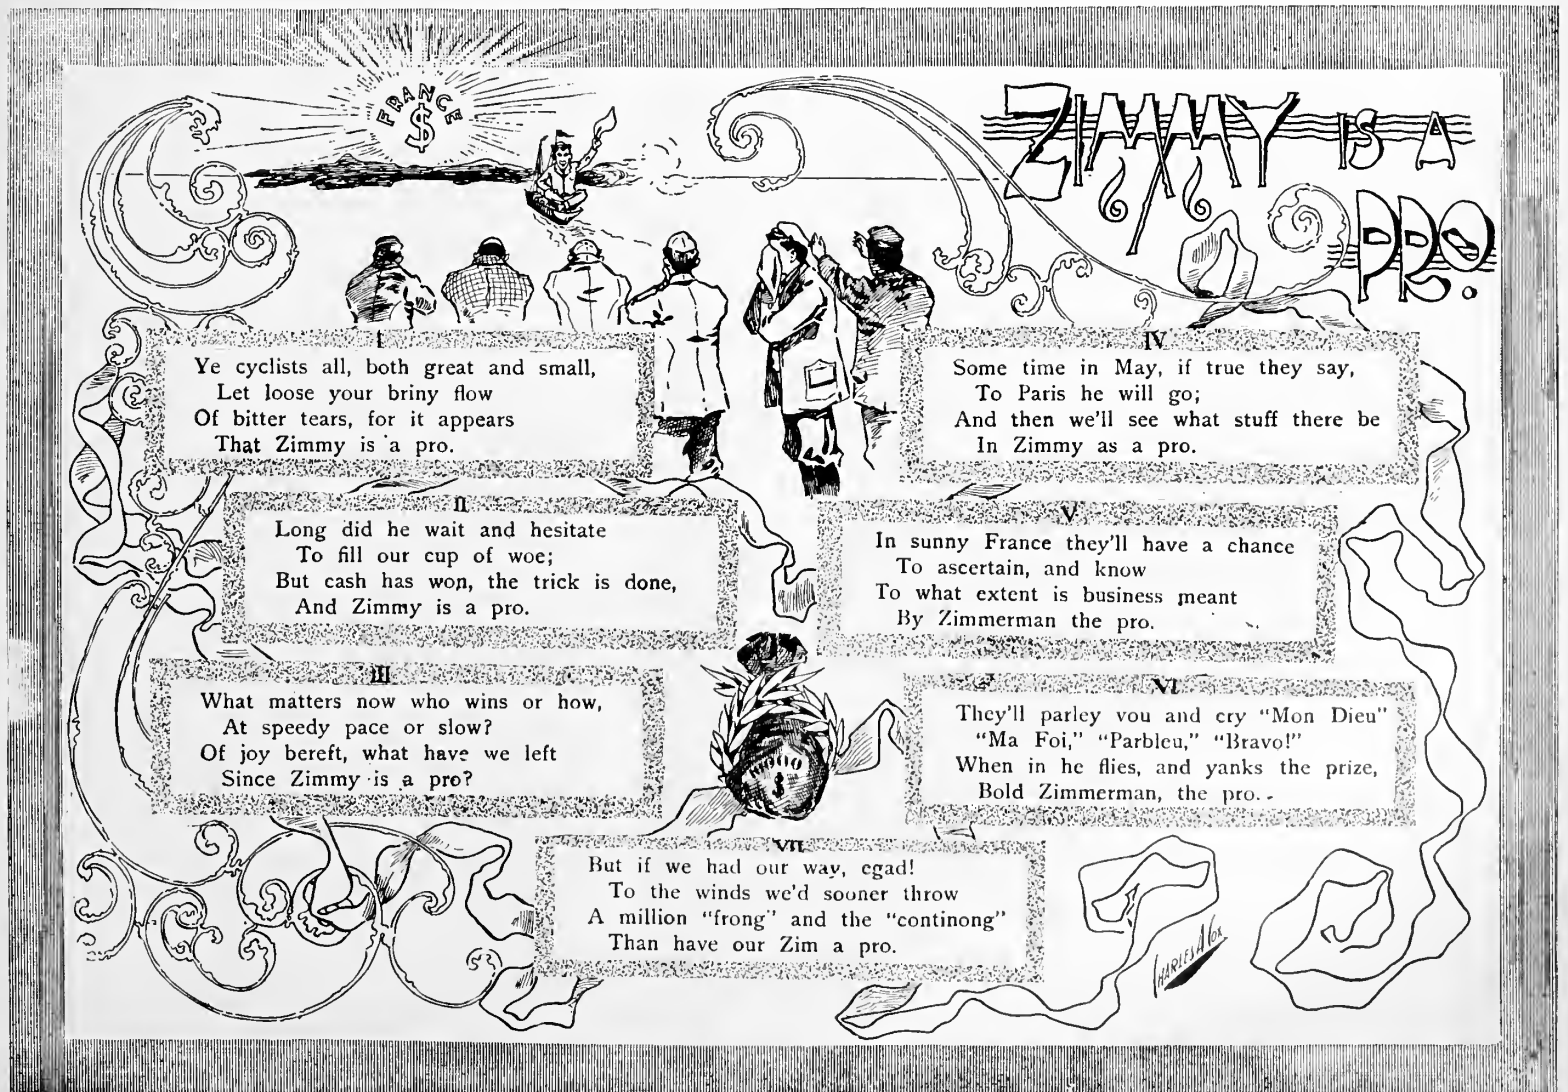 FRANCE
$
ZIMMY IS A
PRO.
I
Ye cyclists all, both great and small,
Let loose your briny flow
Of bitter tears, for it appears
That Zimmy is a pro.
II
Long did he wait and hesitate
To fill our cup of woe;
But cash has won, the trick is done,
And Zimmy is a pro.
III
What matters now who wins or how,
At speedy pace or slow?
Of joy bereft, what have we left
Since Zimmy is a pro?
IV
Some time in May, if true they say,
To Paris he will go;
And then we'll see what stuff there be
In Zimmy as a pro.
V
In sunny France they'll have a chance
To ascertain, and know
To what extent is business meant
By Zimmerman the pro.
VI
They'll parley vou and cry "Mon Dieu"
"Ma Foi," "Parbleu," "Bravo!"
When in he flies, and yanks the prize,
Bold Zimmerman, the pro.
$
VII
But if we had our way, egad!
To the winds we'd sooner throw
A million "frong" and the "continong"
Than have our Zim a pro.
CHARLES A COX